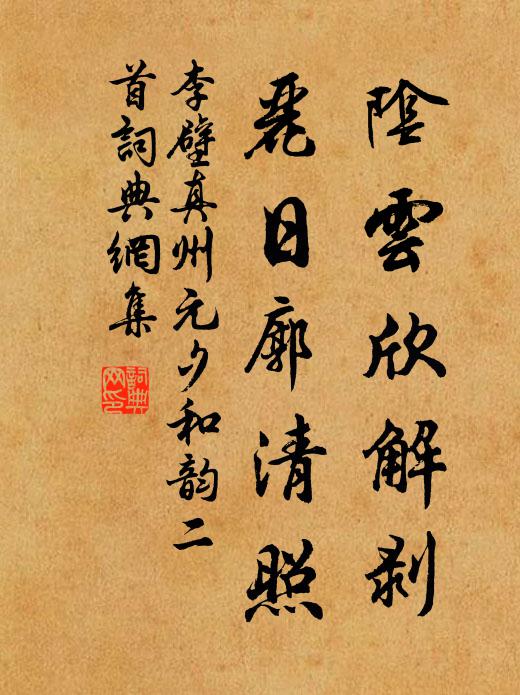 陰雲欣解剥
麗日廓清照
李壁真州元夕和韵二
首詞典網集
詞典
网印